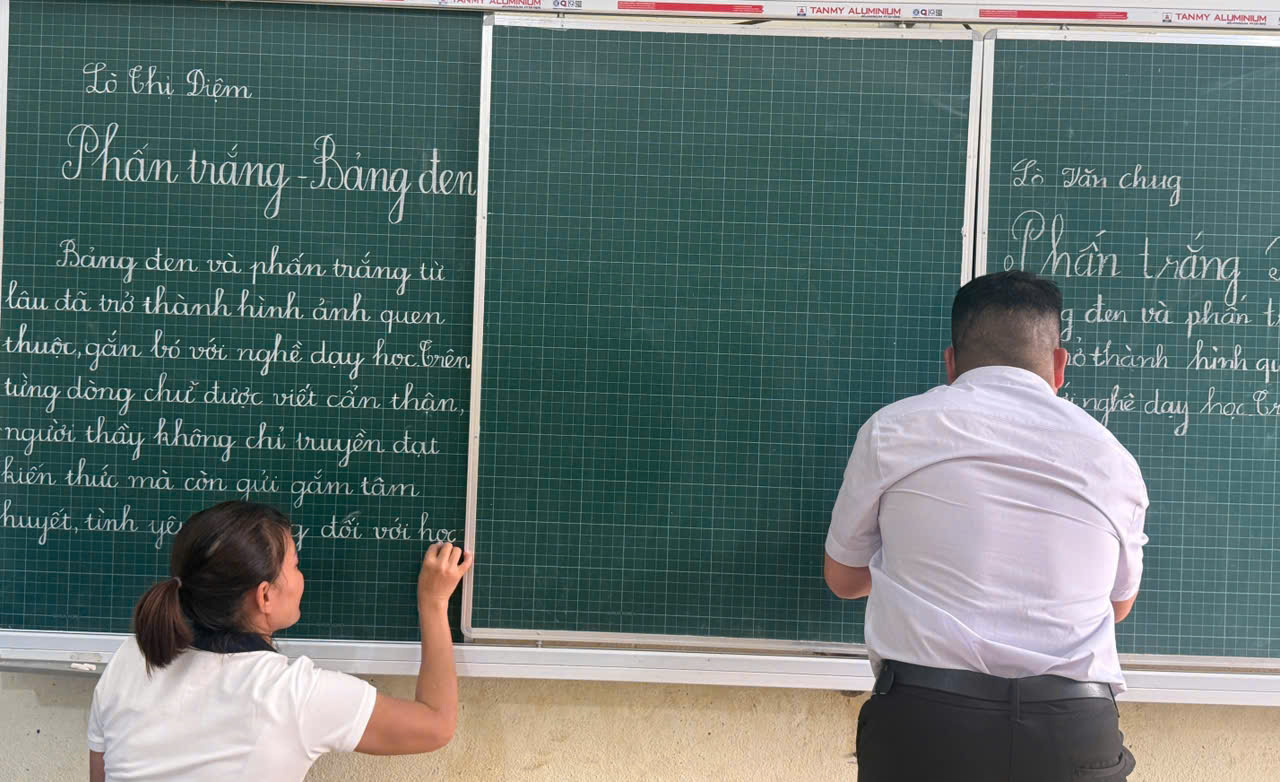 TANMY ALUMINIUM
TANMY ALUMINIUM
TANMY ALUMINIUM
Lò Thị Diệm
Phấn trắng - Bảng đen
Bảng đen và phấn trắng từ
lâu đã trở thành hình ảnh quen
thuộc, gắn bó với nghề dạy học. Trên
từng dòng chữ được viết cẩn thận,
người thầy không chỉ truyền đạt
kiến thức mà còn gửi gắm tâm
huyết, tình đối với học
Lò Văn chug
Phấn trắng
đen và phấn
thành hình
nghề dạy học